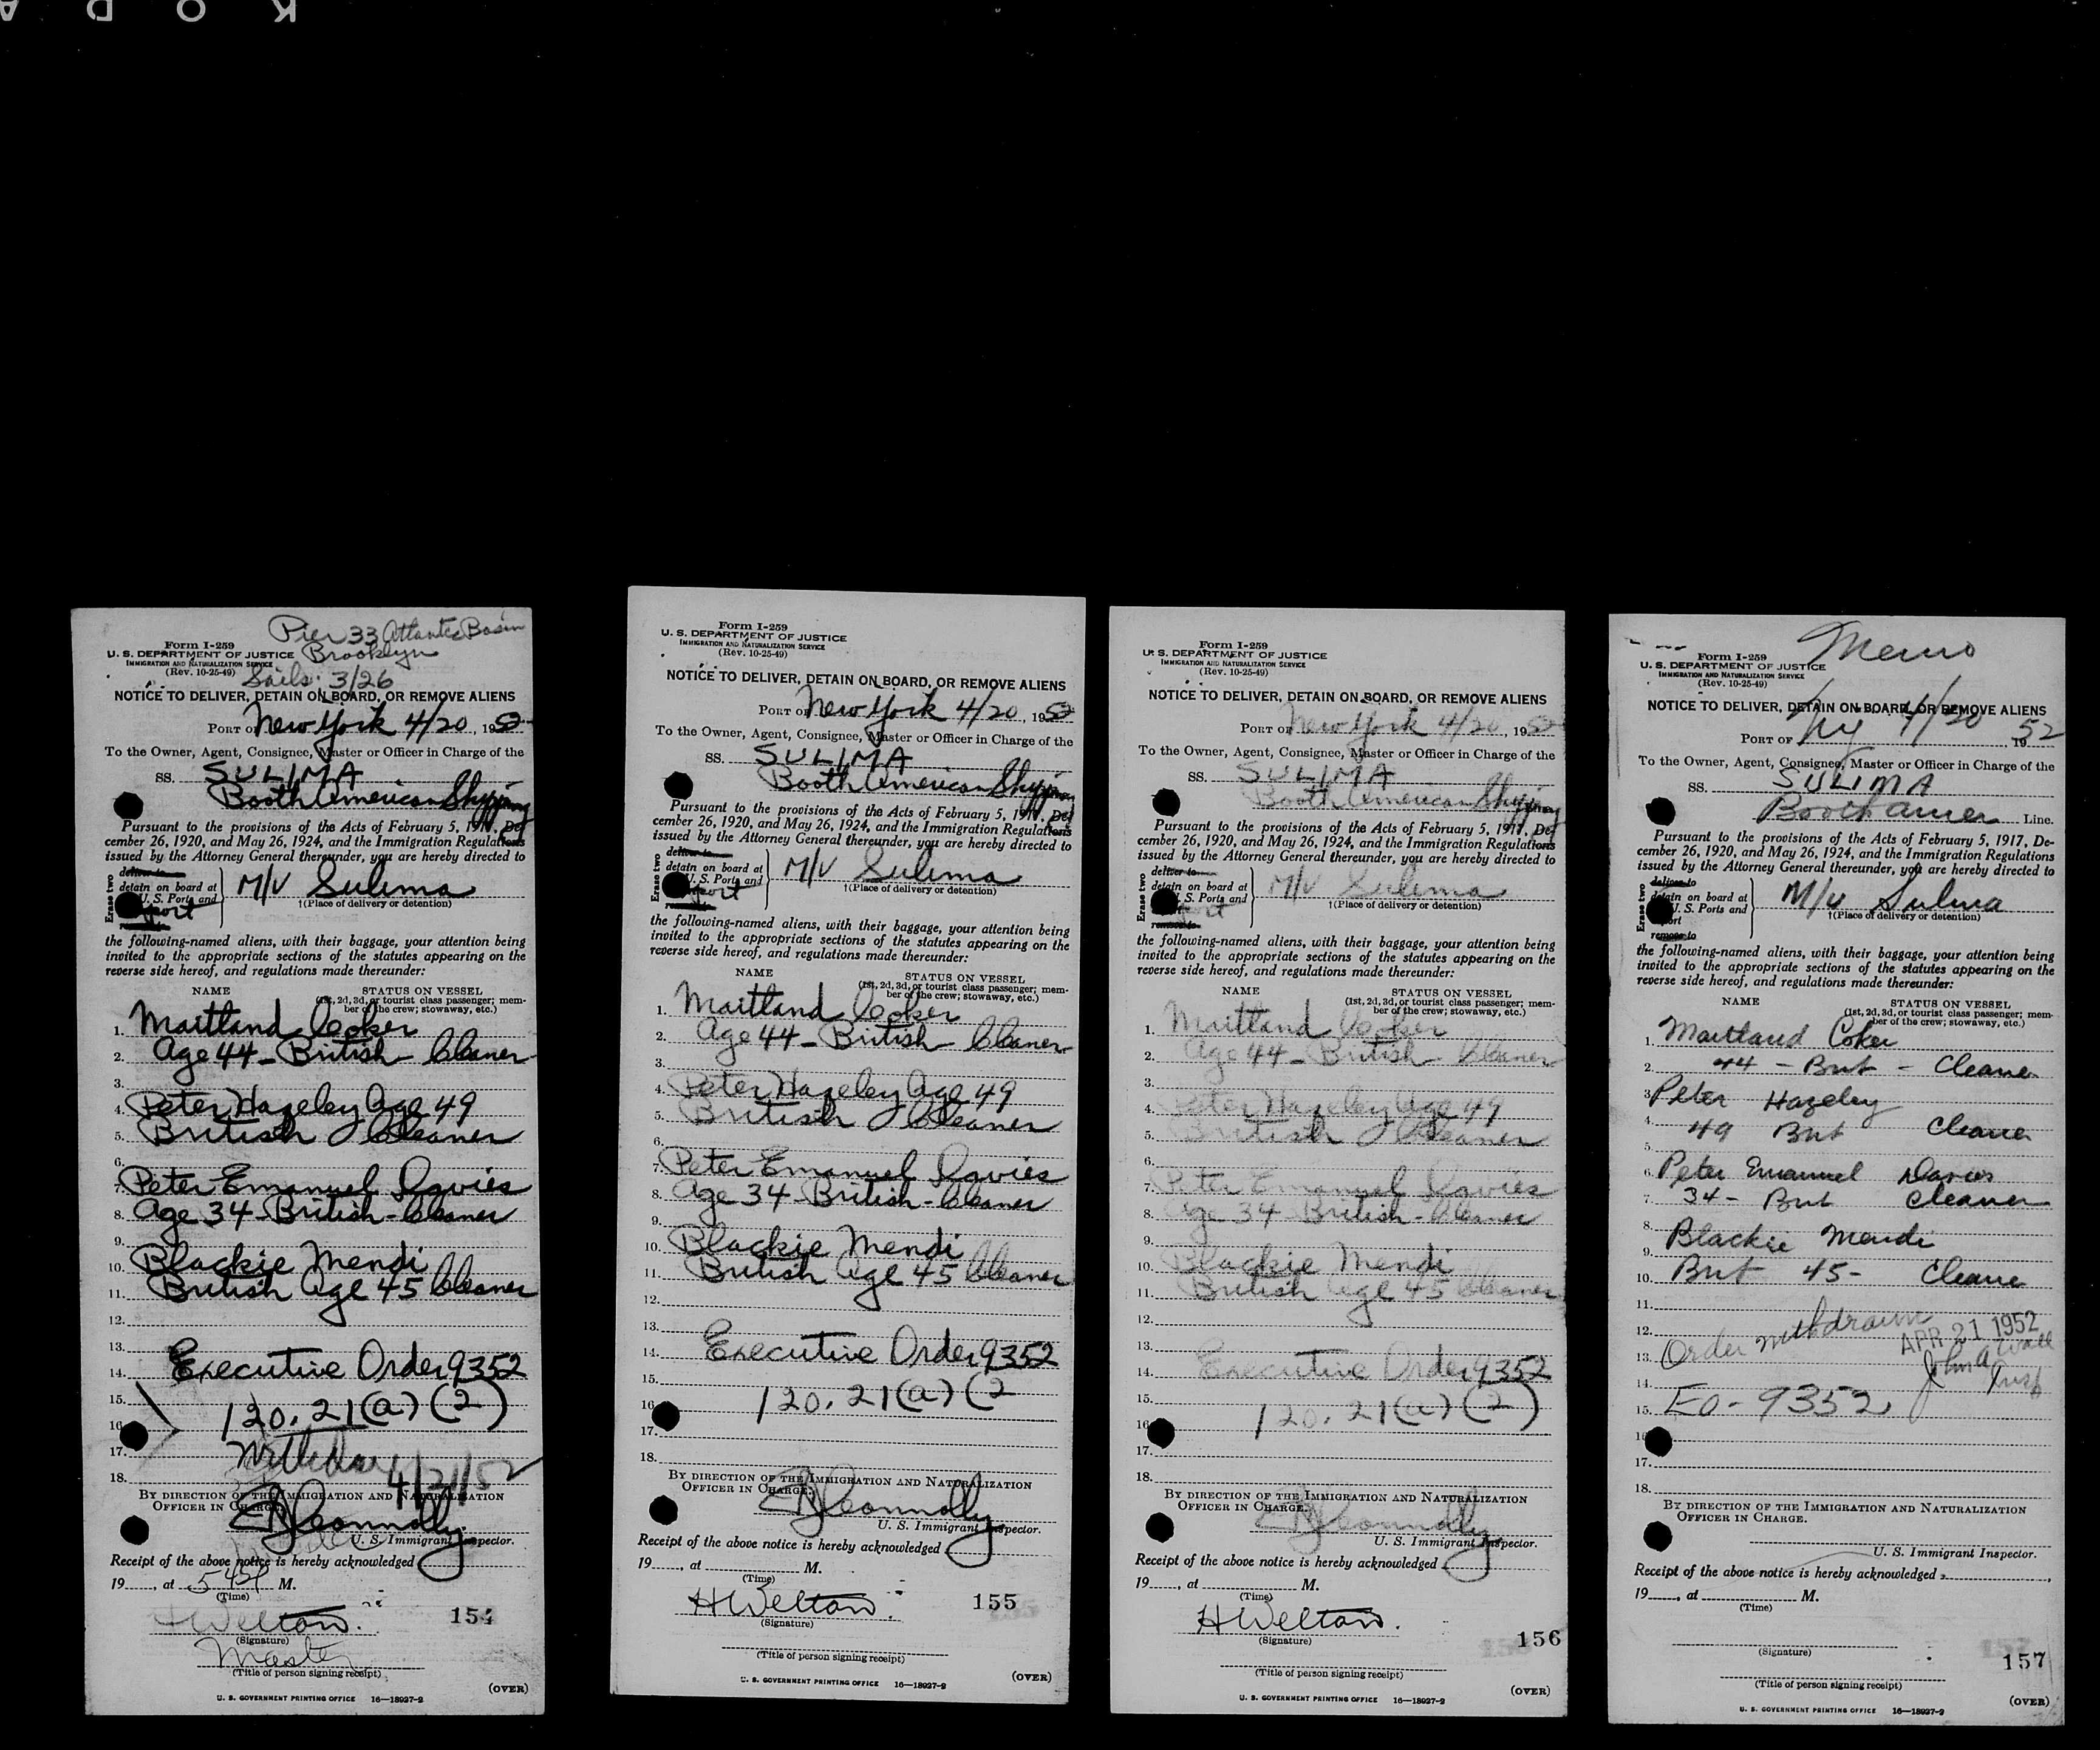 KODA
Pier 33 Atlantic Basin
Form I-259
U. S. DEPARTMENT OF JUSTICE
Brooklyn
IMMIGRATION AND NATURALIZATION SERVICE
(Rev. 10-25-49)
Sails: 3/26
NOTICE TO DELIVER, DETAIN ON BOARD, OR REMOVE ALIENS
PORT OF New York 4/20, 1952
To the Owner, Agent, Consignee, Master or Officer in Charge of the
SS. SULIMA
Booth American Shipping
Pursuant to the provisions of the Acts of February 5, 1917, De-
cember 26, 1920, and May 26, 1924, and the Immigration Regulations
issued by the Attorney General thereunder, you are hereby directed to
Erase two
deliver to
detain on board at
U. S. Ports and
port
M/V Sulima
†(Place of delivery or detention)
the following-named aliens, with their baggage, your attention being
invited to the appropriate sections of the statutes appearing on the
reverse side hereof, and regulations made thereunder:
NAME STATUS ON VESSEL
(1st, 2d, 3d, or tourist class passenger; mem-
ber of the crew; stowaway, etc.)
1. Maitland Cooker
2. Age 44 - British Cleaner
3.
4. Peter Hazeley Age 49
5. British Cleaner
6.
7. Peter Emanuel Davies
8. Age 34 - British - Cleaner
9.
10. Blackie Mendi
11. British Age 45 Cleaner
12.
13.
14. Executive Order 9352
15.
16. 120.21(a)(2)
17. Withdraw
18. 4/21/52
BY DIRECTION OF THE IMMIGRATION AND NATURALIZATION
OFFICER IN CHARGE.
Connolly
U. S. Immigrant Inspector.
Receipt of the above notice is hereby acknowledged
19 , at 545P M.
(Time)
HWelton.
154
(Signature)
Master
(Title of person signing receipt)
(OVER)
U. S. GOVERNMENT PRINTING OFFICE 16—18927-2
Form I-259
U. S. DEPARTMENT OF JUSTICE
IMMIGRATION AND NATURALIZATION SERVICE
(Rev. 10-25-49)
NOTICE TO DELIVER, DETAIN ON BOARD, OR REMOVE ALIENS
PORT OF New York 4/20, 1952
To the Owner, Agent, Consignee, Master or Officer in Charge of the
SS. SULIMA
Booth American Shipping
Pursuant to the provisions of the Acts of February 5, 1917, De-
cember 26, 1920, and May 26, 1924, and the Immigration Regulations
issued by the Attorney General thereunder, you are hereby directed to
Erase two
deliver to
detain on board at
U. S. Ports and
port
M/V Sulima
†(Place of delivery or detention)
the following-named aliens, with their baggage, your attention being
invited to the appropriate sections of the statutes appearing on the
reverse side hereof, and regulations made thereunder:
NAME STATUS ON VESSEL
(1st, 2d, 3d, or tourist class passenger; mem-
ber of the crew; stowaway, etc.)
1. Maitland Cooker
2. Age 44 - British Cleaner
3.
4. Peter Hazeley Age 49
5. British Cleaner
6.
7. Peter Emanuel Davies
8. Age 34 - British - Cleaner
9.
10. Blackie Mendi
11. British Age 45 Cleaner
12.
13.
14. Executive Order 9352
15.
16. 120.21(a)(2
17.
18.
BY DIRECTION OF THE IMMIGRATION AND NATURALIZATION
OFFICER IN CHARGE.
Connolly
U. S. Immigrant Inspector.
Receipt of the above notice is hereby acknowledged
19 , at M.
(Time)
HWelton.
155
(Signature)
(Title of person signing receipt)
(OVER)
U. S. GOVERNMENT PRINTING OFFICE 16—18927-2
Form I-259
U. S. DEPARTMENT OF JUSTICE
IMMIGRATION AND NATURALIZATION SERVICE
(Rev. 10-25-49)
NOTICE TO DELIVER, DETAIN ON BOARD, OR REMOVE ALIENS
PORT OF New York 4/20, 1952
To the Owner, Agent, Consignee, Master or Officer in Charge of the
SS. SULIMA
Booth American Shipping
Pursuant to the provisions of the Acts of February 5, 1917, De-
cember 26, 1920, and May 26, 1924, and the Immigration Regulations
issued by the Attorney General thereunder, you are hereby directed to
Erase two
deliver to
detain on board at
S. Ports and
port
remove to
M/V Sulima
†(Place of delivery or detention)
the following-named aliens, with their baggage, your attention being
invited to the appropriate sections of the statutes appearing on the
reverse side hereof, and regulations made thereunder:
NAME STATUS ON VESSEL
(1st, 2d, 3d, or tourist class passenger; mem-
ber of the crew; stowaway, etc.)
1. Maitland Cooker
2. Age 44 - British Cleaner
3.
4. Peter Hazeley Age 49
5. British Cleaner
6.
7. Peter Emanuel Davies
8. Age 34 British - Cleaner
9.
10. Blackie Mendi
11. British Age 45 Cleaner
12.
13.
14. Executive Order 9352
15.
16. 120.21(a)(2)
17.
18.
BY DIRECTION OF THE IMMIGRATION AND NATURALIZATION
OFFICER IN CHARGE.
Connolly
U. S. Immigrant Inspector.
Receipt of the above notice is hereby acknowledged
19 , at M.
(Time)
HWelton.
156
(Signature)
(Title of person signing receipt)
(OVER)
U. S. GOVERNMENT PRINTING OFFICE 16—18927-2
Memo
Form I-259
U. S. DEPARTMENT OF JUSTICE
IMMIGRATION AND NATURALIZATION SERVICE
(Rev. 10-25-49)
NOTICE TO DELIVER, DETAIN ON BOARD, OR REMOVE ALIENS
PORT OF NY 4/20 1952
To the Owner, Agent, Consignee, Master or Officer in Charge of the
SS. SULIMA
Booth Amer Line.
Pursuant to the provisions of the Acts of February 5, 1917, De-
cember 26, 1920, and May 26, 1924, and the Immigration Regulations
issued by the Attorney General thereunder, you are hereby directed to
Erase two
deliver to
detain on board at
U. S. Ports and
port
remove to
M/V Sulima
†(Place of delivery or detention)
the following-named aliens, with their baggage, your attention being
invited to the appropriate sections of the statutes appearing on the
reverse side hereof, and regulations made thereunder:
NAME STATUS ON VESSEL
(1st, 2d, 3d, or tourist class passenger; mem-
ber of the crew; stowaway, etc.)
1. Maitland Coker
2. 44 - Brit - Cleaner
3. Peter Hazeley
4. 49 Brit Cleaner
5.
6. Peter Emanuel Davies
7. 34 - Brit Cleaner
8.
9. Blackie Mendi
10. Brit 45 - Cleaner
11.
12. Order withdrawn APR 21 1952
13. John A Wall
14. Insp
15. EO - 9352
16.
17.
18.
BY DIRECTION OF THE IMMIGRATION AND NATURALIZATION
OFFICER IN CHARGE.
U. S. Immigrant Inspector.
Receipt of the above notice is hereby acknowledged
19 , at M.
(Time)
(Signature)
157
(Title of person signing receipt)
(OVER)
U. S. GOVERNMENT PRINTING OFFICE 16—18927-2